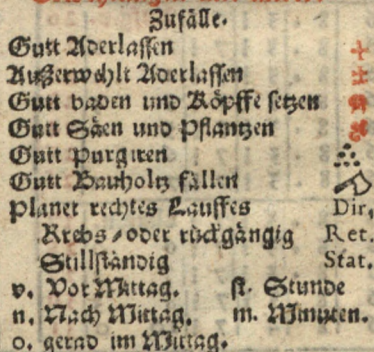 Zufälle.
Gutt Aderlassen
Außerwehlt Aderlassen
Gutt baden und Köpffe setzen
Gutt Säen und Pflantzen
Gutt Purgiren
Gutt Bauholtz fällen
Planet rechtes Lauffes Dir.
Krebs- oder rückgängig Ret.
Stillständig Stat.
v. Vor Mittag. st. Stunde
n. Nach Mittag. m. Minuten.
o. gerad im Mittag.